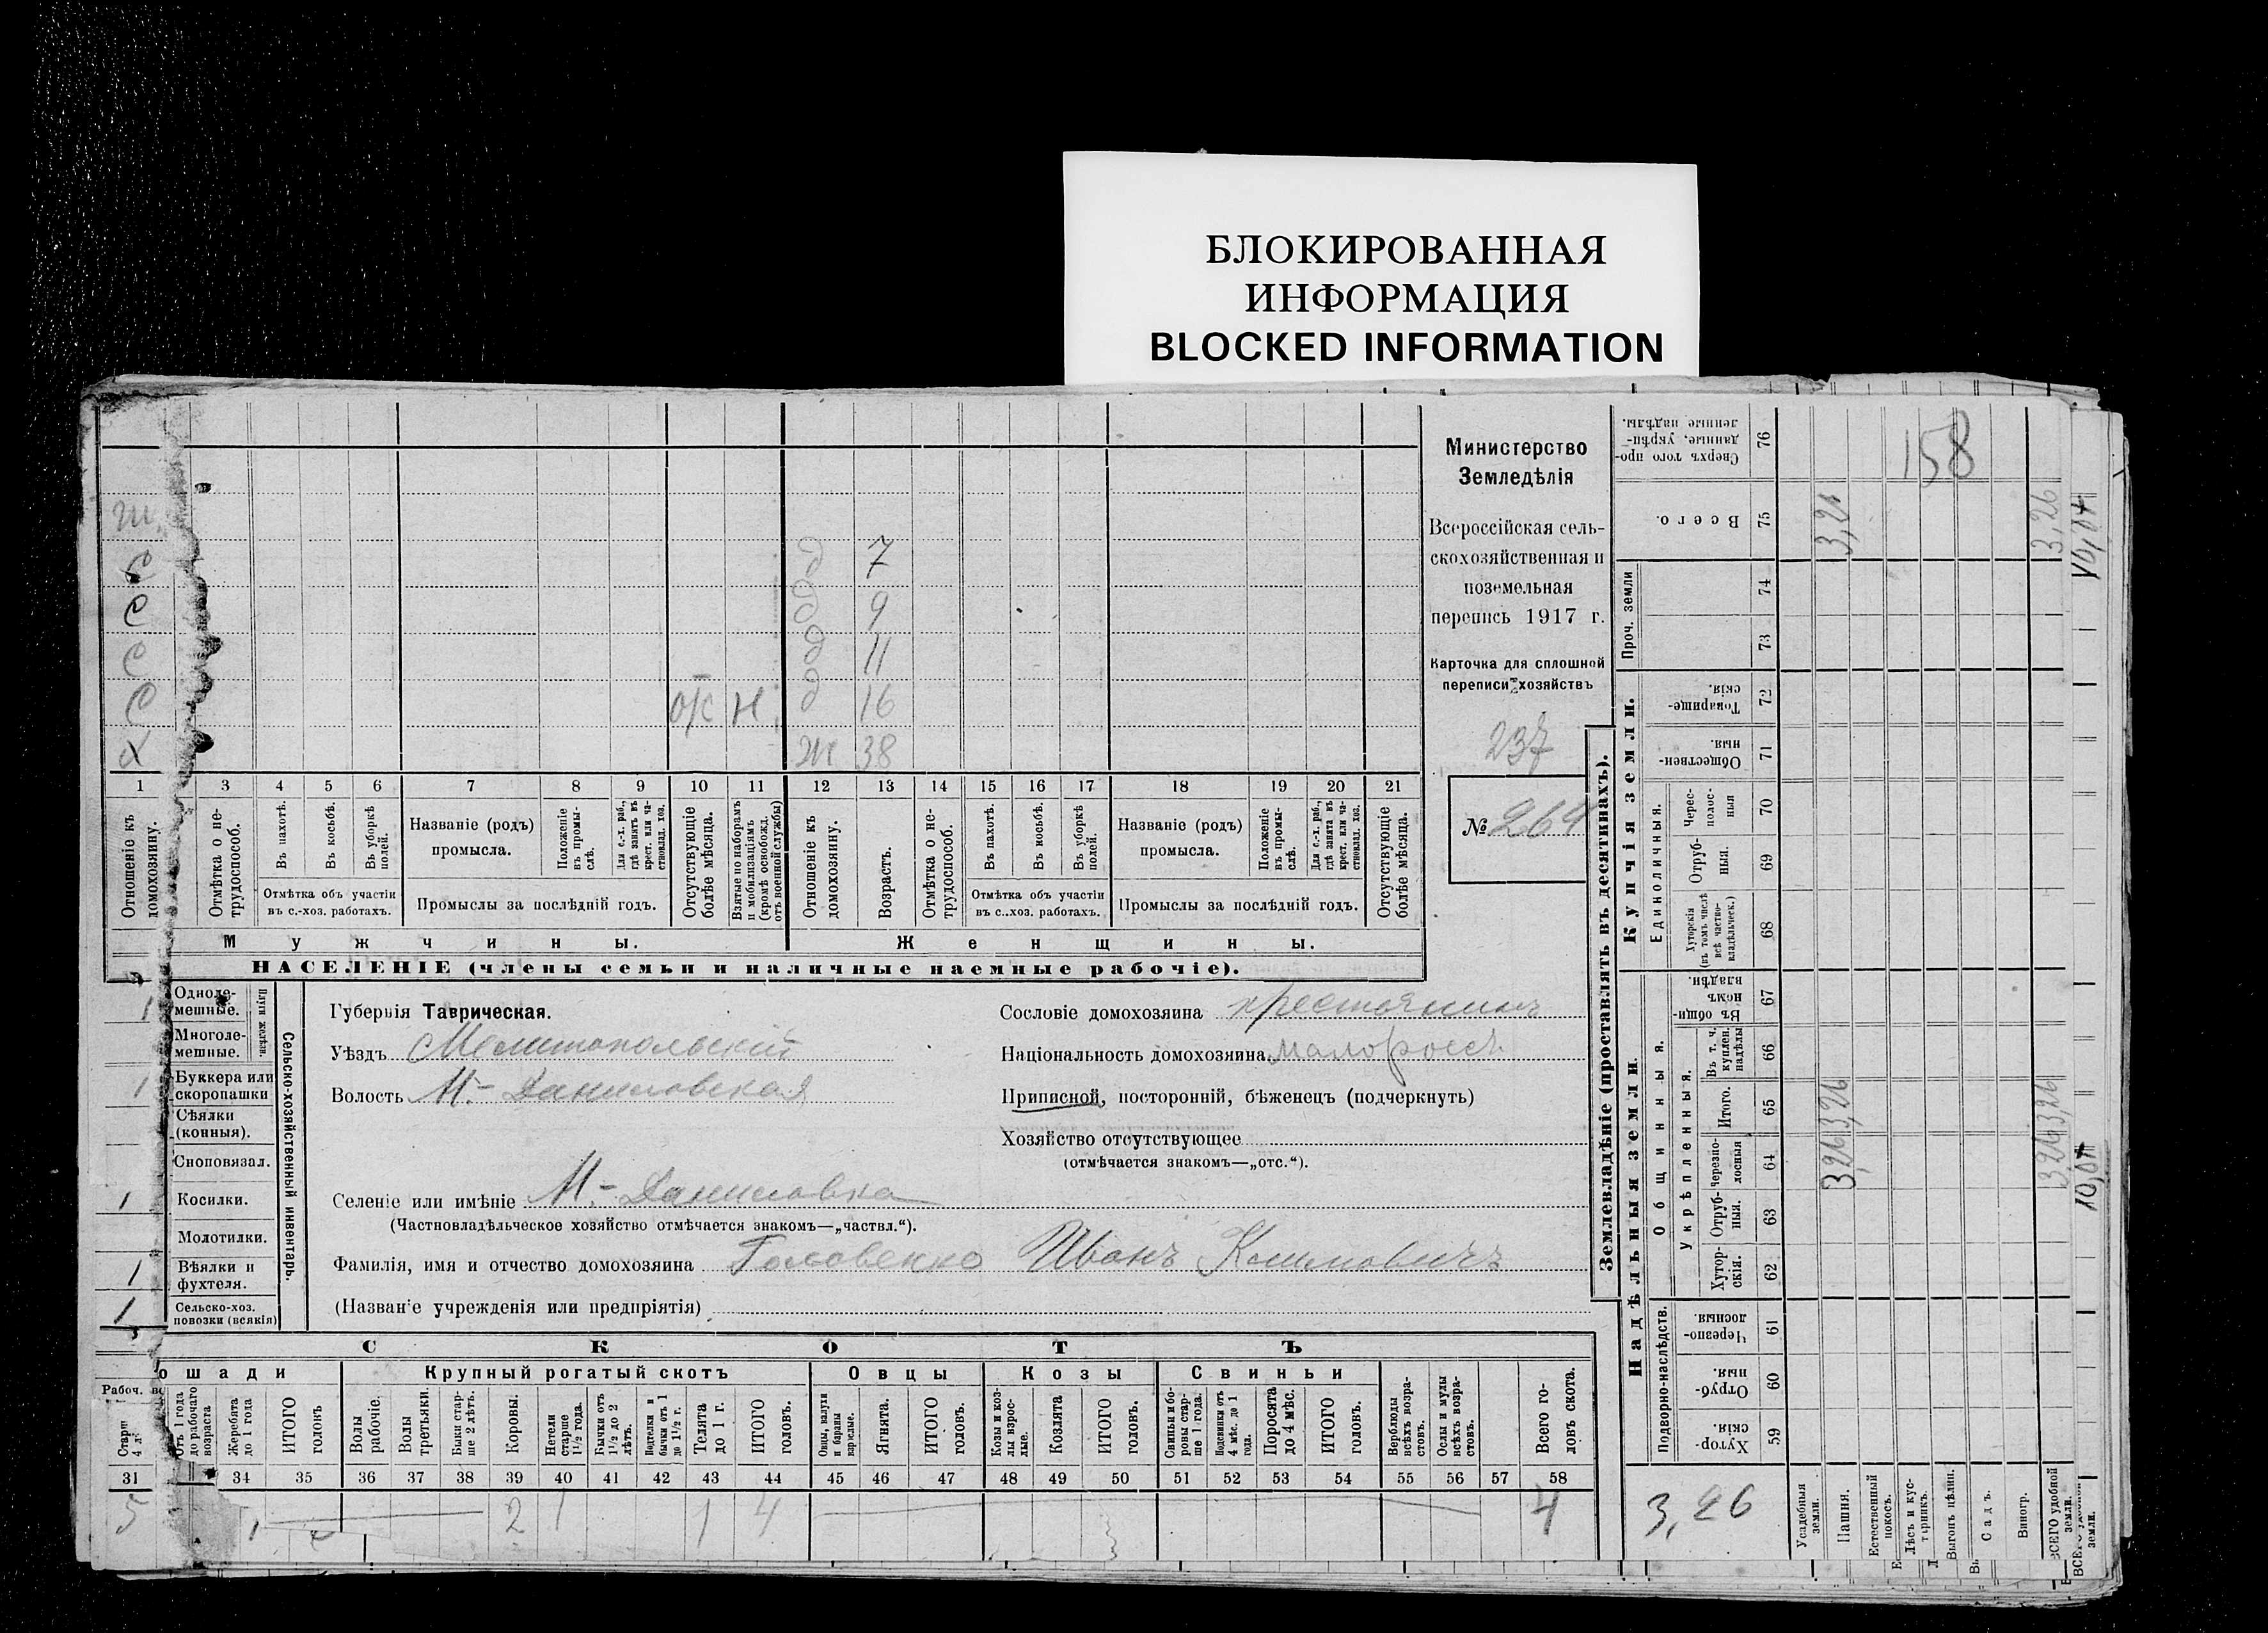 БЛОКИРОВАННАЯ
ИНФОРМАЦИЯ
BLOCKED INFORMATION
ш.
С д 7
С д 9
С д 11
С о/с н. д 16
х ж 38
1 3 4 5 6 7 8 9 10 11 12 13 14 15 16 17 18 19 20 21
Отношеніе къ домохозяину.
Отмѣтка о не-трудоспособ.
Въ пахотѣ.
Въ косьбѣ.
Въ уборкѣ полей.
Отмѣтка объ участіи
въ с.-хоз. работахъ.
Названіе (родъ)
промысла.
Положеніе въ промы-слѣ.
Для с.-х. раб., гдѣ занятъ въ крест. или ча-стновлад. хоз.
Промыслы за послѣдній годъ.
Отсутствующіе болѣе мѣсяца.
Взятые по наборамъ и мобилизаціямъ (кромѣ освобожд. отъ военной службы)
Отношеніе къ домохозяину.
Возрастъ.
Отмѣтка о не-трудоспособ.
Въ пахотѣ.
Въ косьбѣ.
Въ уборкѣ полей.
Отмѣтка объ участіи
въ с..хоз. работахъ.
Названіе (родъ)
промысла.
Положеніе въ промы-слѣ.
Для с.-х. раб., гдѣ занята въ крест. или ча-стновлад. хоз.
Промыслы за послѣдній годъ.
Отсутствующіе болѣе мѣсяца.
Мужчины.
Женщины.
НАСЕЛЕНІЕ (члены семьи и наличные наемные рабочіе).
Министерство
Земледѣлія
Всероссійская сель-
скохозяйственная и
поземельная
перепись 1917 г.
Карточка для сплошной
переписи хозяйствъ
237
№ 264
Одноле-
мешные.
1
Многоле-
мешные.
Плуги желѣзн.
Буккера или
скоропашки
1
Сѣялки
(конныя).
Сноповязал.
Косилки.
1
Молотилки.
Вѣялки и
фухтеля.
1
Сельско-хоз.
повозки (всякія)
1
Сельско-хозяйственный инвентарь.
Губернія Таврическая.
Уѣздъ Мелитопольскій
Волость М.- Даниловская
Селеніе или имѣніе М.- Даниловка
(Частновладѣльческое хозяйство отмѣчается знакомъ—„частвл.“).
Фамилія, имя и отчество домохозяина Головенко Иванъ Климовичъ
(Названіе учрежденія или предпріятія)
Сословіе домохозяина крестьянинъ
Національность домохозяина малороссъ
Приписной, посторонній, бѣженецъ (подчеркнуть)
Хозяйство отсутствующее
(отмѣчается знакомъ—„отс.“).
СКОТЪ
ошади
Крупный рогатый скотъ
Овцы
Козы
Свиньи
Рабоч.
Отъ 1 года до рабочаго возраста
Жеребята до 1 года
ИТОГО головъ
Волы рабочіе.
Волы третьяки.
Быки стар-ше 2 лѣтъ.
Коровы.
Нетели старше 1½ года.
Бычки отъ 1½ до 2 лѣтъ.
Подтелки и бычки отъ 1 до 1½ г.
Телята до 1 г.
ИТОГО головъ.
Овцы, валухи и бараны взрослые.
Ягнята.
ИТОГО головъ.
Козы и коз-лы взрос-лые.
Козлята
ИТОГО головъ.
Свиньи и бо-ровы стар-ше 1 года.
Подсвинки отъ 4 мѣс. до 1 года.
Поросята до 4 мѣс.
ИТОГО головъ.
Верблюды всѣхъ возра-стовъ.
Ослы и мулы всѣхъ возра-стовъ.
Всего го-ловъ скота.
31 34 35 36 37 38 39 40 41 42 43 44 45 46 47 48 49 50 51 52 53 54 55 56 57 58
5 2 1 1 4 4
Землевладѣніе (проставлять въ десятинахъ).
Надѣльныя земли.
Купчія земли.
Проч. земли
Подворно-наслѣдств.
Общинныя.
Укрѣпленныя.
Единоличныя.
Хутор-скія. 59
Отруб-ныя. 60
Черезпо-лосныя 61
Хутор-скія. 62
Отруб-ныя. 63
Черезпо-лосныя 64
Итого. 65
Въ т. ч. куплен. надѣлы 66
Въ общи-номъ владѣн. 67
Хуторскія (въ томъ числѣ всѣ частно-владѣльческ.) 68
Отруб-ныя. 69
Черес-полос-ныя 70
Обществен-ныя. 71
Товарище-скія. 72
73
74
Всего. 75
Сверхъ того про-данные, укрѣп-ленные надѣлы. 76
3,26
Усадебныя земли.
Пашня.
3,26 3,26 3,26
Естественный покосъ.
Лѣсъ и кус-тарникъ.
Выгонъ цѣлин.
Садъ.
Виногр.
ВСЕГО удобной земли.
3,26 3,26 3,26
158